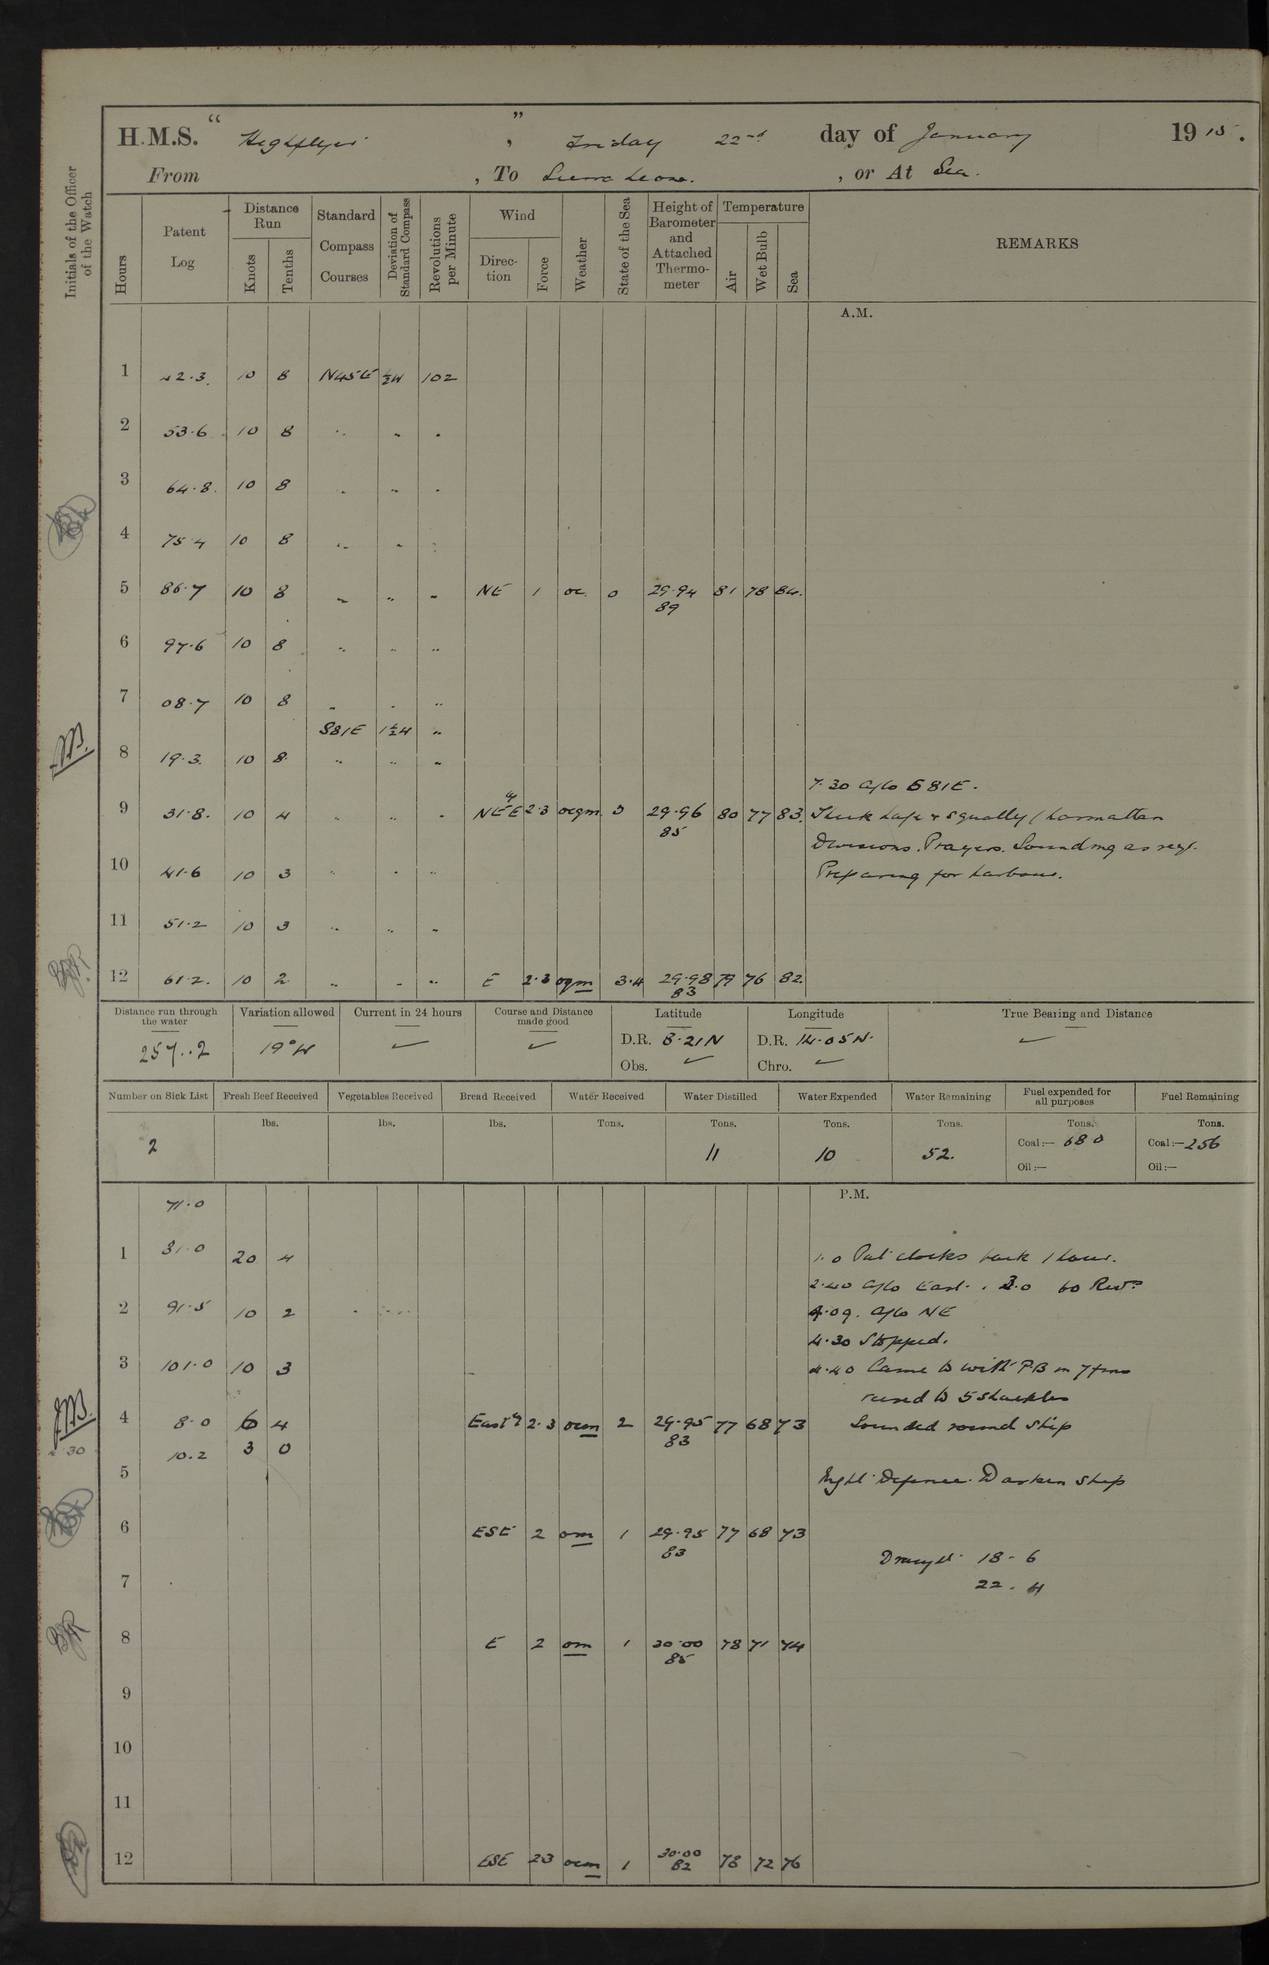 H.M.S. “ Highflyer ” , Friday 22nd day of January 1915.
From , To Sierra Leone. , or At Sea.
Initials of the Officer of the Watch
Hours
Patent Log
Distance Run
Knots
Tenths
Standard Compass Courses
Deviation of Standard Compass
Revolutions per Minute
Wind
Direction
Force
Weather
State of the Sea
Height of Barometer and Attached Thermometer
Temperature
Air
Wet Bulb
Sea
REMARKS
A.M.
1 42.3 10 8 N45E ½W 102
2 53.6 10 8 " " "
3 64.8 10 8 " " "
4 75.4 10 8 " " "
5 86.7 10 8 " " " NE 1 oc 0 29.94 81 78 84
89
6 97.6 10 8 " " "
7 08.7 10 8 " " "
S81E 1½W "
8 19.3 10 8 " " "
7.30 a/co S81E.
9 31.8 10 4 " " " NE'E 2.3 ocqm 3 29.96 80 77 83 Thick haze & squally (harmattan
85
Divisions. Prayers. Sounding as req.
10 41.6 10 3 " " " Preparing for harbour.
11 51.2 10 3 " " "
12 61.2 10 2 " " " E 2.3 oqm 3.4 29.98 79 76 82
83
Distance run through the water
Variation allowed
Current in 24 hours
Course and Distance made good
Latitude
Longitude
True Bearing and Distance
257..2 19°W D.R. 8.21N D.R. 14.05W
Obs. Chro.
Number on Sick List
Fresh Beef Received
Vegetables Received
Bread Received
Water Received
Water Distilled
Water Expended
Water Remaining
Fuel expended for all purposes
Fuel Remaining
lbs. lbs. lbs. Tons. Tons. Tons. Tons. Tons. Tons.
2 11 10 52. Coal:— 680 Coal:— 256
Oil:— Oil:—
P.M.
71.0
1 81.0 20 4 1.0 Put clocks back 1 hour.
2.40 a/co East. 3.0 60 Revs
2 91.5 10 2 4.09. a/co NE
4.30 Stopped.
3 101.0 10 3 4.40 Came to with PB in 7 fms
veered to 5 shackles
4 8.0 6 4 East'y 2.3 ocm 2 29.95 77 68 73 Sounded round ship
83
10.2 3 0
5 Night Defence. Darken ship
6 ESE 2 om 1 29.95 77 68 73
83
Draught 18-6
7 22-4
8 E 2 om 1 30.00 78 71 74
85
9
10
11
12 ESE 23 ocm 1 30.00 78 72 76
82